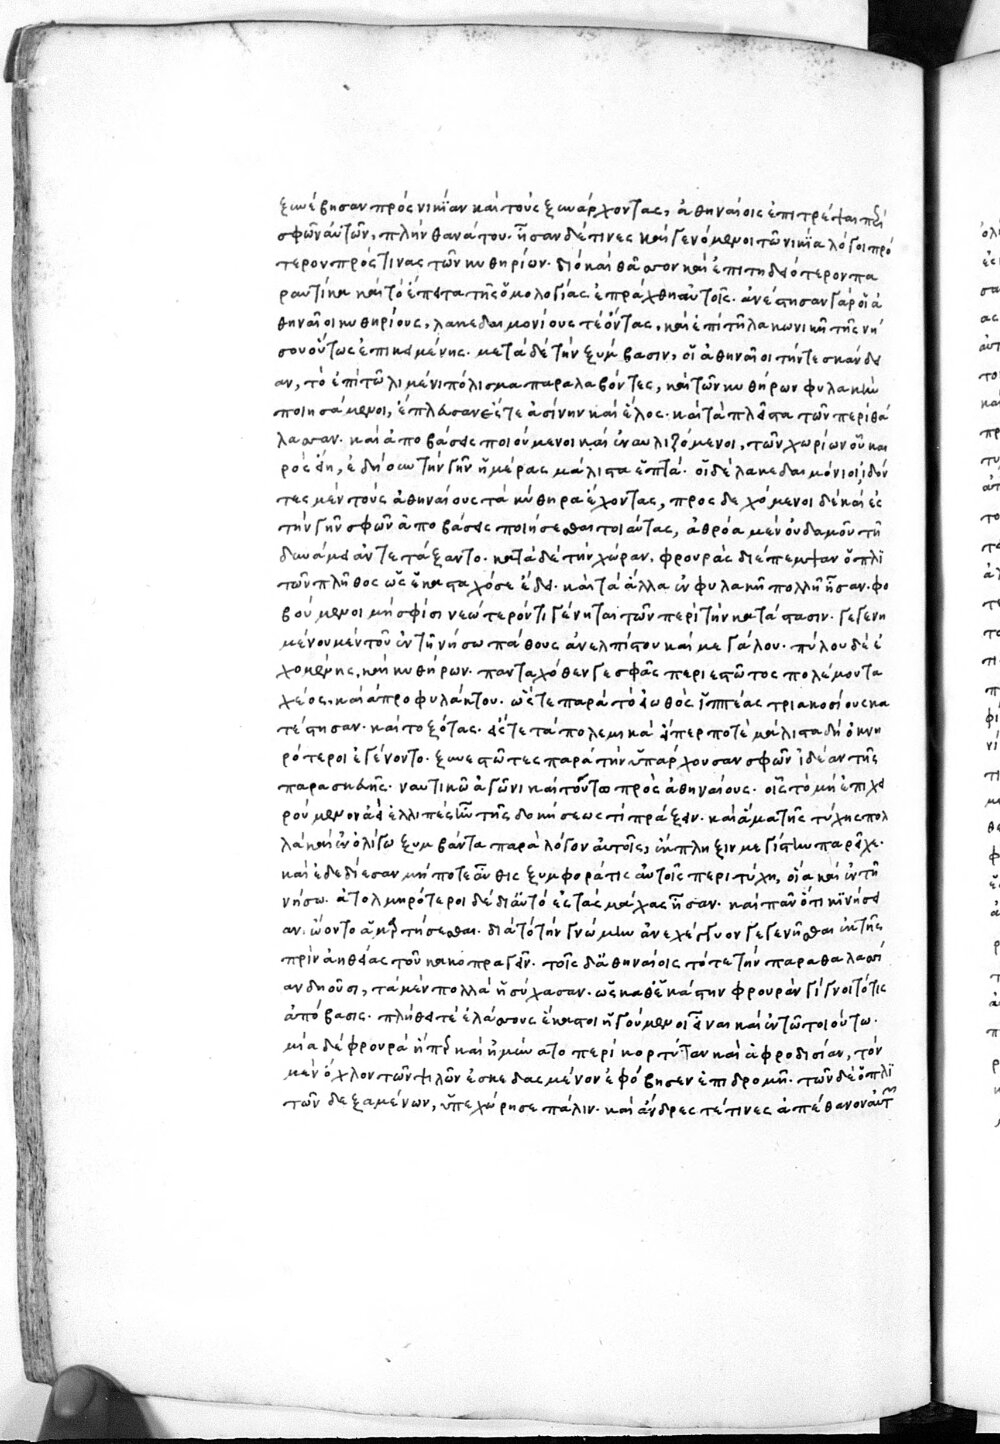 ξυνέβησαν πρὸς νικίαν καὶ τοὺς ξυνάρχοντας, ἀθηναίοις ἐπιτρέψαι περὶ
σφῶν αὐτῶν, πλὴν θανάτου· ἦσαν δέ τινες καὶ γενόμενοι τῶ νικία λόγοι πρό
τερον πρός τινας τῶν κυθηρίων· διὸ καὶ θᾶσσον καὶ ἐπιτηδειότερον πα
ραυτίκα καὶ τὸ ἔπειτα τῆς ὁμολογίας ἐπράχθη αὐτοῖς· ἀνέστησαν γὰρ οἱ ἀ
θηναῖοι κυθηρίους, λακεδαιμονίους τε ὄντας, καὶ ἐπὶ τῆ λακωνικῆ τῆς νή
σου οὕτως ἐπικειμένης· μετὰ δὲ τὴν ξύμβασιν, οἱ ἀθηναῖοι τήν τε σκάνδει
αν, τὸ ἐπὶ τῶ λιμένι πόλισμα παραλαβόντες, καὶ τῶν κυθήρων φυλακὴν
ποιησάμενοι, ἔπλευσαν ἔς τε ἀσίνην καὶ ἕλος· καὶ τὰ πλεῖστα τῶν περὶ θά
λασσαν· καὶ ἀποβάσεις ποιούμενοι καὶ ἐναυλιζόμενοι, τῶν χωρίων οὗ και
ρὸς εἴη, ἐδήιουν τὴν γῆν ἡμέρας μάλιστα ἑπτά· οἱ δὲ λακεδαιμόνιοι, ἰδόν
τες μὲν τοὺς ἀθηναίους τὰ κύθηρα ἔχοντας, προσδεχόμενοι δὲ καὶ ἐς
τὴν γῆν σφῶν ἀποβάσεις ποιήσεσθαι τοιαύτας, ἀθρόα μὲν οὐδαμοῦ τῆ
δυνάμει ἀντετάξαντο· κατὰ δὲ τὴν χώραν, φρουρὰς διέπεμψαν ὁπλι
τῶν πλῆθος ὡς ἑκασταχόσε ἔδει· καὶ τὰ ἄλλα ἐν φυλακῆ πολλῆ ἦσαν· φο
βούμενοι μὴ σφίσι νεώτερόν τι γένηται τῶν περὶ τὴν κατάστασιν· γεγενη
μένου μὲν τοῦ ἐν τῆ νήσω πάθους ἀνελπίστου καὶ μεγάλου· πύλου δὲ ἐ
χομένης, καὶ κυθήρων· πανταχόθεν γε σφᾶς περιεστῶτος πολέμου τα
χέος, καὶ ἀπροφυλάκτου· ὥστε παρὰ τὸ εἰωθὸς ἱππέας τριακοσίους κα
τέστησαν· καὶ τοξότας· ἔς τε τὰ πολεμικὰ εἴπερ ποτὲ μάλιστα δὴ ὀκνη
ρότεροι ἐγένοντο· ξυνεστῶτες παρὰ τὴν ὑπάρχουσαν σφῶν ἰδέαν τῆς
παρασκευῆς· ναυτικῶ ἀγῶνι καὶ τούτω πρὸς ἀθηναίους· οἷς τὸ μὴ ἐπιχει
ρούμενον ἀεὶ ἐλλιπὲς ἦν τῆς δοκήσεώς τι πράξειν· καὶ ἅμα τῆς τύχης πολ
λὰ καὶ ἐν ὀλίγω ξυμβάντα παρὰ λόγον αὐτοῖς, ἔκπληξιν μεγίστην παρεῖχε·
καὶ ἐδεδίεσαν μή ποτε αὖθις ξυμφορά τις αὐτοῖς περιτύχη, οἵα καὶ ἐν τῆ
νήσω· ἀτολμηρότεροι δὲ δι' αὐτὸ ἐς τὰς μάχας ἦσαν· καὶ πᾶν ὅ τι κινήσει
αν, ὤοντο ἁμαρτήσεσθαι· διὰ τὸ τὴν γνώμην ἀνεχέγγυον γεγενῆσθαι ἐκ τῆς
πρὶν ἀηθείας τοῦ κακοπραγεῖν· τοῖς δ' ἀθηναίοις τότε τὴν παραθαλασσί
αν δηοῦσι, τὰ μὲν πολλὰ ἡσύχασαν· ὡς καθ' ἑκάστην φρουρὰν γίγνοιτό τις
ἀπόβασις· πλήθει τὲ ἐλάσσους ἕκαστοι ἡγούμενοι εἶναι καὶ ἐν τῶ τοιούτω·
μία δὲ φρουρὰ ἥπερ καὶ ἠμύνατο περὶ κορτύταν καὶ ἀφροδισίαν, τὸν
μὲν ὄχλον τῶν ψιλῶν ἐσκεδασμένον ἐφόβησεν ἐπιδρομῆ· τῶν δὲ ὁπλι
τῶν δεξαμένων, ὑπεχώρησε πάλιν· καὶ ἄνδρες τέ τινες ἀπέθανον αὐτῶν